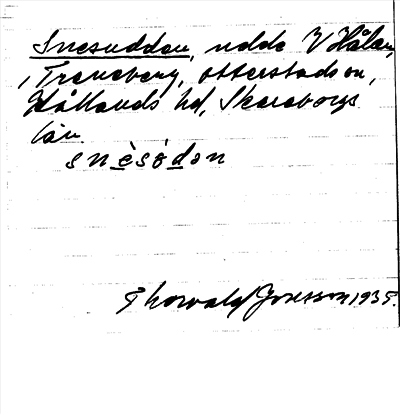 Snesudden, udde V Hålan,
i Traneberg, Otterstads sn,
Kållands hd, Skaraborgs
län.
snèsòdɔn
Thorvald Jonsson 1935.